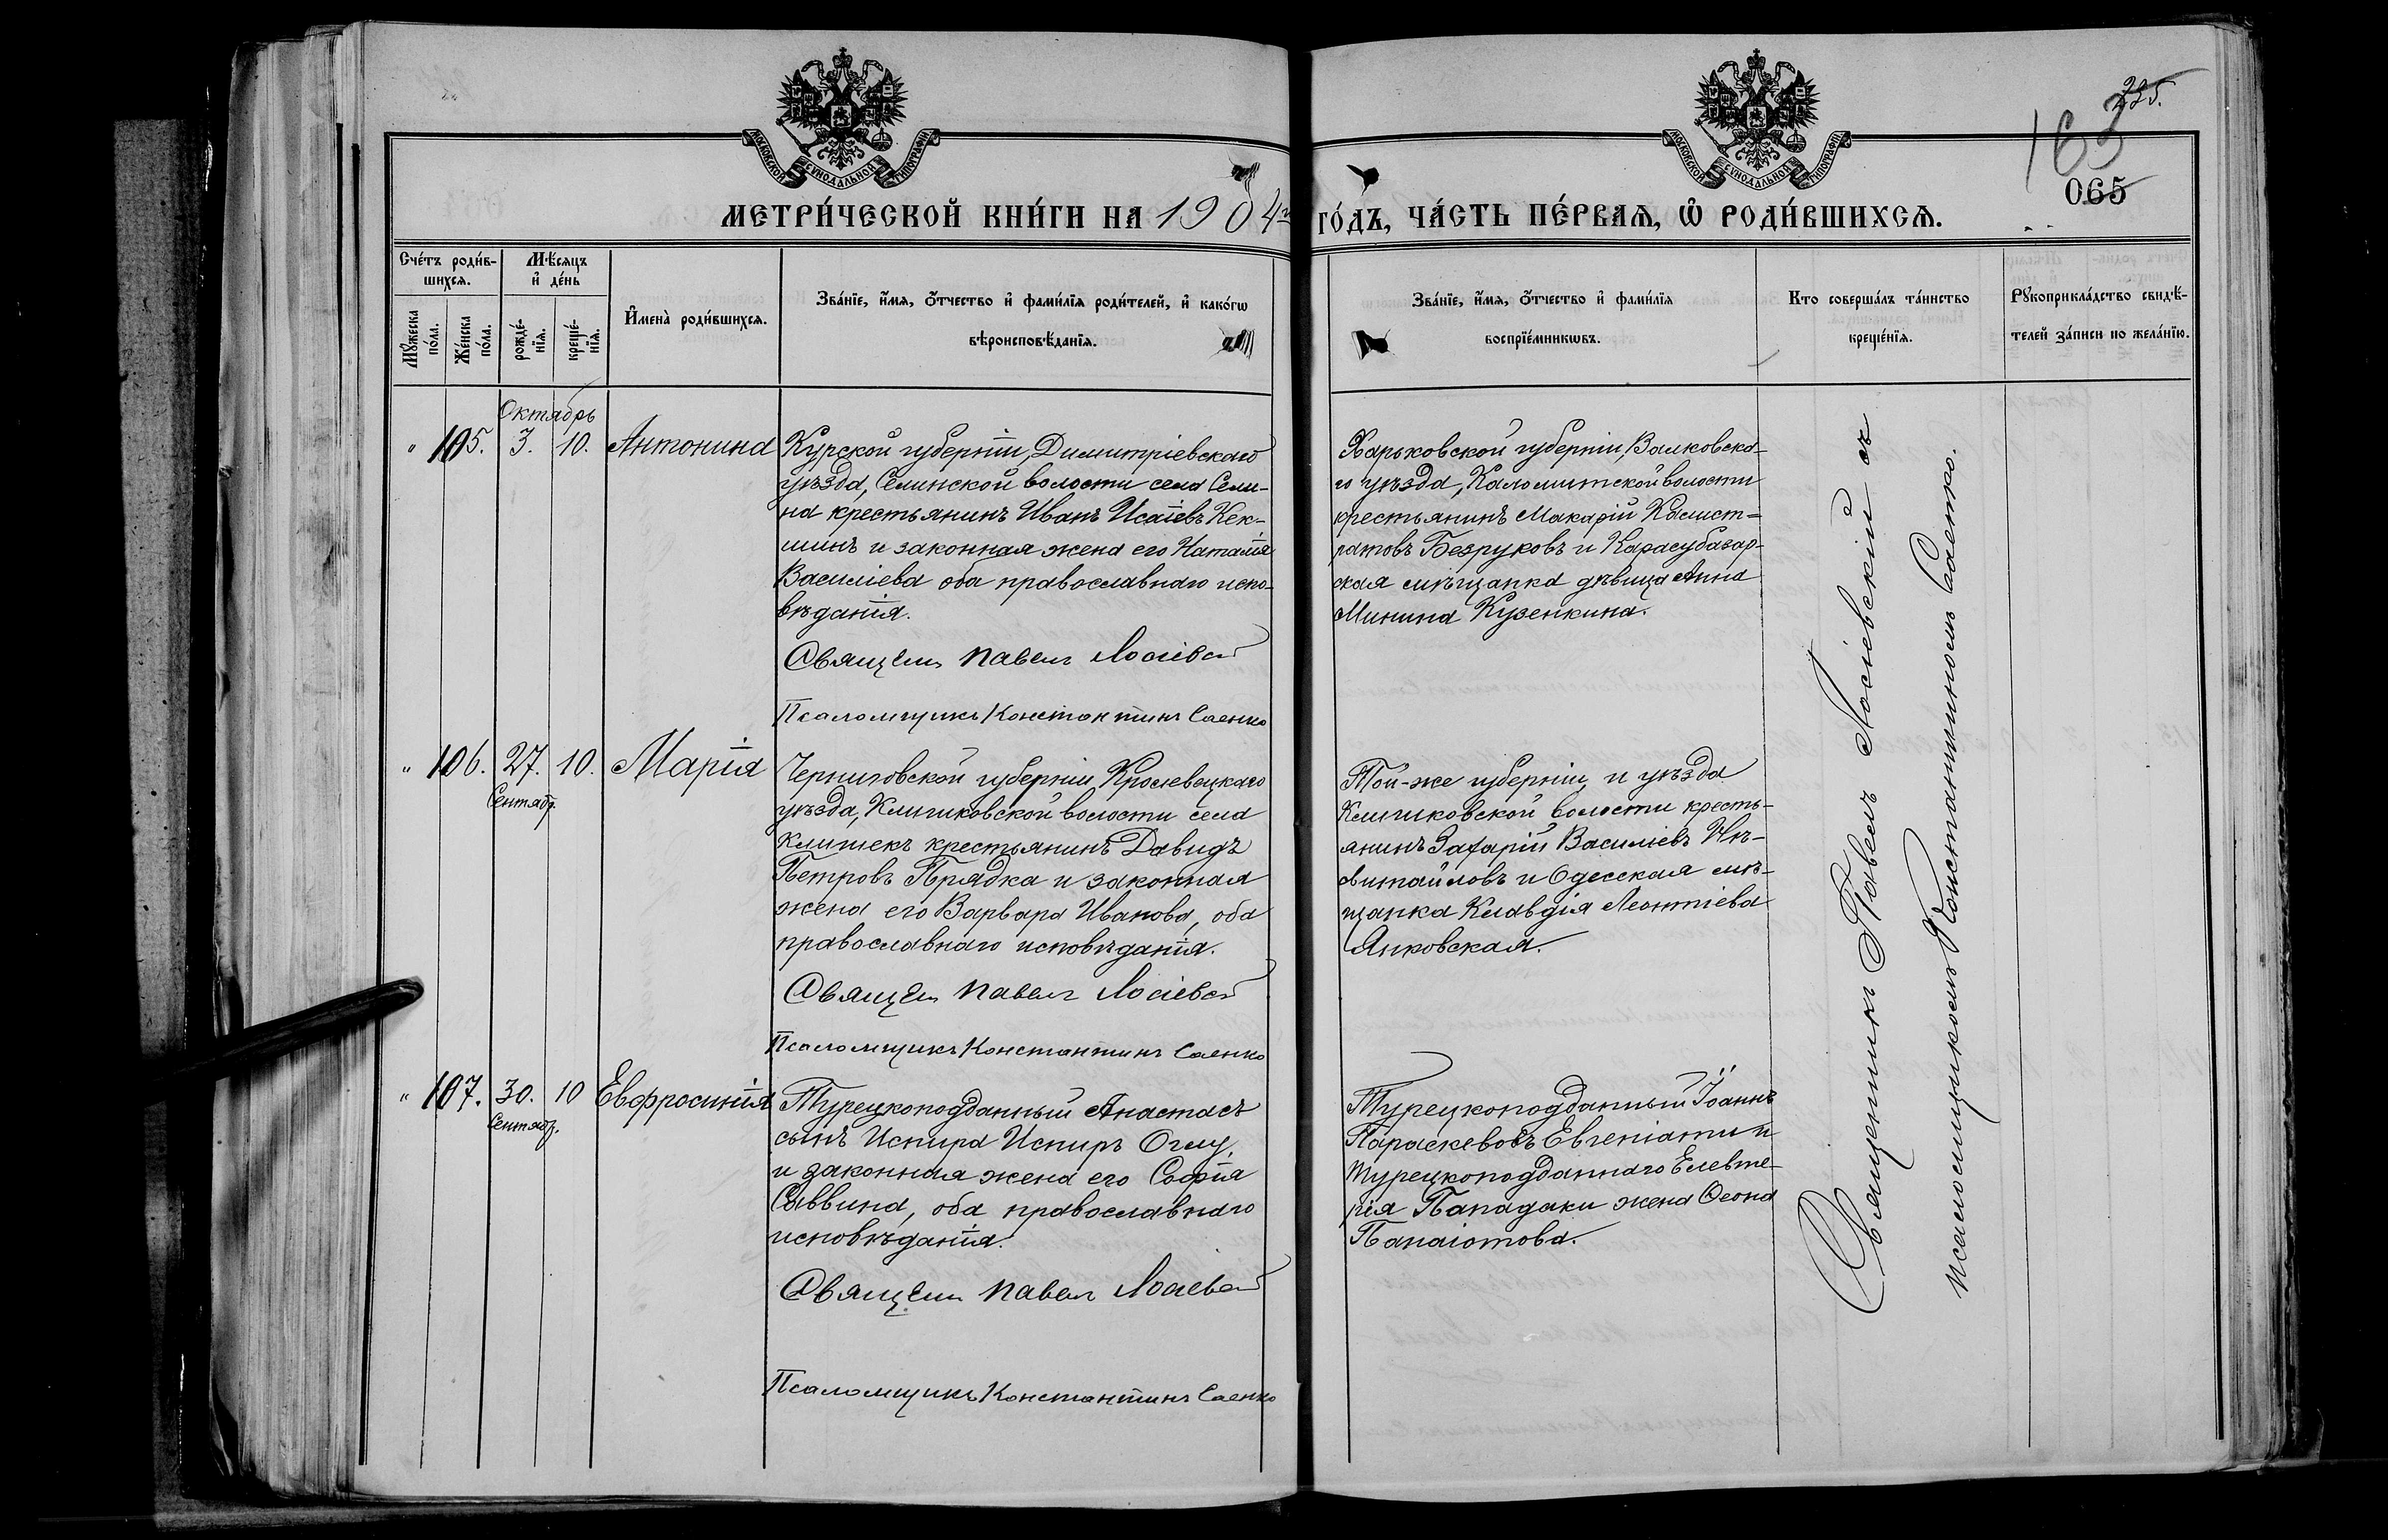 225.
163
065
МОСКОВСКОЙ СѴНОДАЛЬНОЙ ТИПОГРАФІИ
МОСКОВСКОЙ СѴНОДАЛЬНОЙ ТИПОГРАФІИ
МЕТРИ́ЧЕСКОЙ КНИ́ГИ НА 1904й ГО́ДЪ, ЧА́СТЬ ПЕ́РВАѦ, Ѡ҆ РОДИ́ВШИХСѦ.
Сче́тъ роди́в-
шихсѧ.
Мꙋ́жеска
по́ла.
Же́нска
по́ла.
Мѣ́сѧцъ
и҆ де́нь
рожде́-
нїѧ.
креще́-
нїѧ.
И҆мена̀ роди́вшихсѧ.
Зва́нїе, и҆́мѧ, ѻ҆́тчество и҆ фами́лїѧ роди́телей, и҆ како́гѡ
вѣроисповѣ́данїѧ.
Зва́нїе, и҆́мѧ, ѻ҆́тчество и҆ фами́лїѧ
воспрїе́мникѡвъ.
Кто соверша́лъ та́инство
креще́нїѧ.
Рꙋкоприкла́дство свидѣ́-
телей за́писи по жела́нїю.
Октябрь
" 105. 3. 10. Антонина
Курской губерніи, Димитріевскаго
уѣзда, Селинской волости села Сели-
на крестьянинъ Иванъ Исаіевъ Кек-
шинъ и законная жена его Наталія
Василіева оба православнаго испо-
вѣданія.
Священ Павелъ Лосіевск
Псаломщикъ Константинъ Саенко
Харьковской губерніи, Валковска-
го уѣзда, Каломитской волости
крестьянинъ Макарій Калист-
ратовъ Безруковъ и Карасубазар-
ская мѣщанка дѣвица Анна
Минина Кузенкина.
" 106. 27. 10. Марія
Сентябр.
Черниговской губерніи Кролевецкаго
уѣзда, Клишковской волости села
Клишекъ крестьянинъ Давидъ
Петровъ Прядка и законная
жена его Варвара Иванова, оба
православнаго исповѣданія.
Священ Павелъ Лосіевск
Псаломщикъ Константинъ Саенко
Той-же губерніи и уѣзда
Клишковской волости кресть-
янинъ Захарій Василіевъ
и Одесская мѣ-
щанка Клавдія Леонтіева
Янковская.
" 107. 30. 10 Евфросинія
Сентябр.
Турецкоподданный Анастасъ
сынъ Испира Испиръ Оглу,
и законная жена его Софія
Саввина, оба православнаго
исповѣданія.
Священ Павелъ Лосіевск
Псаломщикъ Константинъ Саенко
Турецкоподданный Іоаннъ
Параскевовъ Евгеніати и
турецкоподданнаго Елевте-
рія Пападаки жена Ѳеона
Панаіотова.
Священникъ Павелъ Лосіевскій съ
псаломщикомъ Константиномъ Саенко.